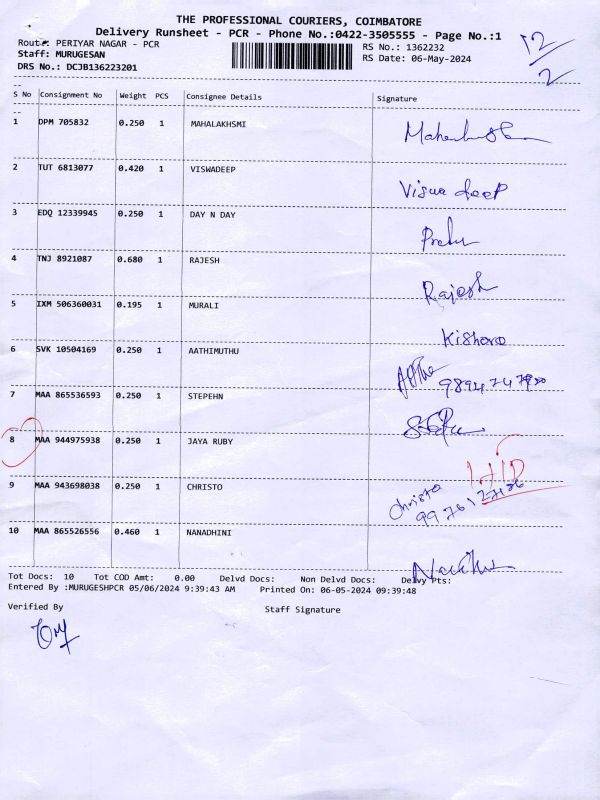 THE PROFESSIONAL COURIERS, COIMBATORE
Delivery Runsheet - PCR - Phone No.:0422-3505555 - Page No.:1
12/2
Route: PERIYAR NAGAR - PCR
RS No.: 1362232
Staff: MURUGESAN
RS Date: 06-May-2024
DRS No.: DCJB136223201
S No Consignment No Weight PCS Consignee Details Signature
1 DPM 705832 0.250 1 MAHALAKHSMI
2 TUT 6813077 0.420 1 VISWADEEP Viswa deep
3 EDQ 12339945 0.250 1 DAY N DAY
4 TNJ 8921087 0.680 1 RAJESH Rajesh
5 IXM 506360031 0.195 1 MURALI Kishore
6 SVK 10504169 0.250 1 AATHIMUTHU
7 MAA 865536593 0.250 1 STEPEHN
8 MAA 944975938 0.250 1 JAYA RUBY
9 MAA 943698038 0.250 1 CHRISTO Christo
10 MAA 865526556 0.460 1 NANADHINI
Tot Docs: 10 Tot COD Amt: 0.00 Delvd Docs: Non Delvd Docs: Delvy Pts:
Entered By :MURUGESHPCR 05/06/2024 9:39:43 AM Printed On: 06-05-2024 09:39:48
Verified By Staff Signature